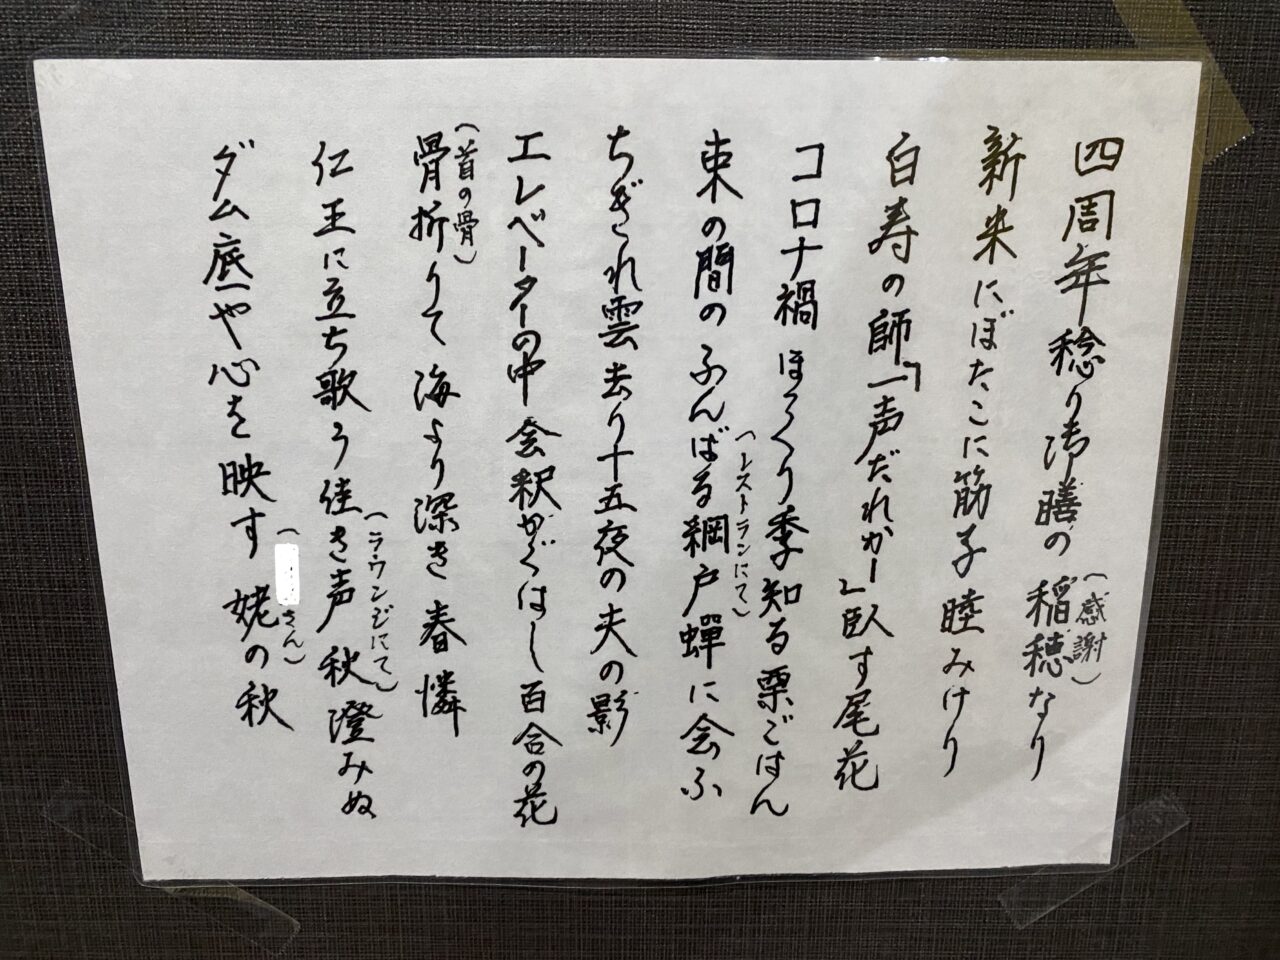 四周年稔り御膳の稲穂なり
(感謝)
新米にぼたこに筋子睦みけり
白寿の師「声だれかー」臥す尾花
コロナ禍ほっくり季知る栗ごはん
(レストランにて)
束の間のふんばる網戸蟬に会ふ
ちぎれ雲去り十五夜の夫の影
エレベーターの中会釈かぐはし百合の花
(首の骨)
骨折りて海より深き春憐
仁王に立ち歌う佳き声秋澄みぬ
(ラウンジにて)
ダム底や心を映す姥の秋
(さん)